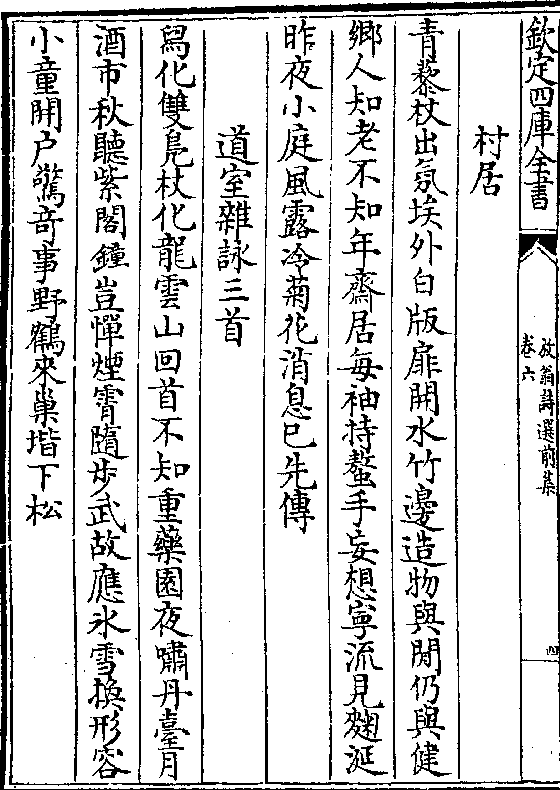 欽定四庫全書
放翁詩選前集
卷六
四
村居
青藜杖出氛埃外白版扉開水竹邊造物與閒仍與健
鄉人知老不知年齋居每袖持螯手妄想寧流見麴涎
昨夜小庭風露冷菊花消息已先傳
道室雜詠三首
舄化雙鳧杖化龍雲山回首不知重藥園夜嘯丹臺月
酒市秋聽紫閣鐘豈憚煙霄隨步武故應冰雪換形容
小童開户驚竒事野鶴來巢堦下松